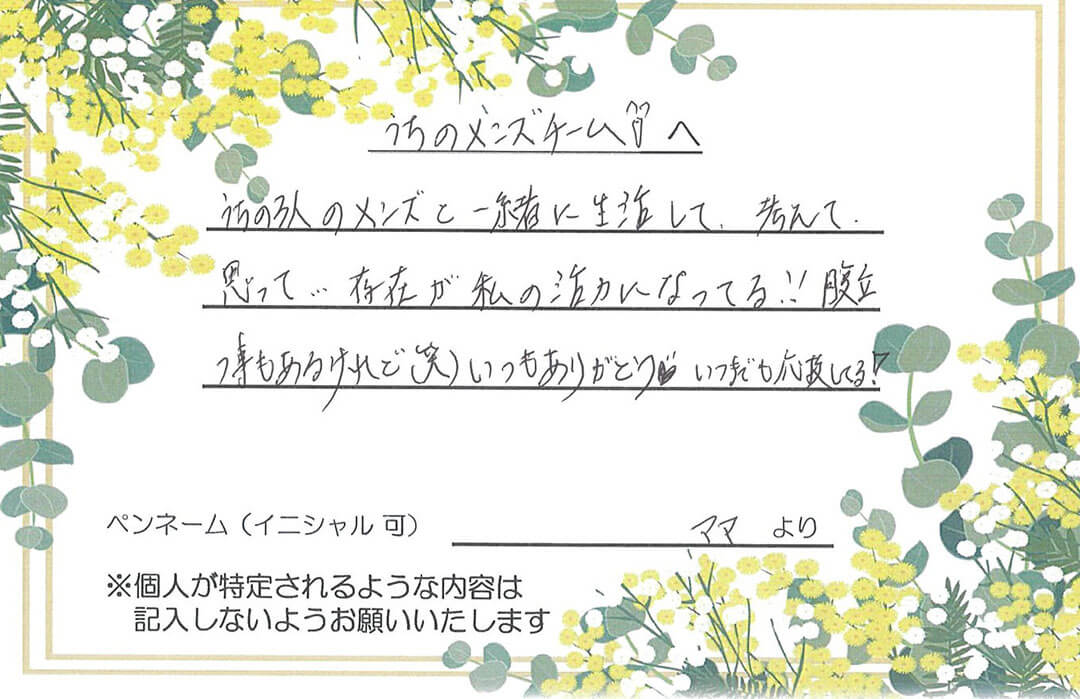 うちのメンズチームへ
うちの3人のメンズと一緒に生活して、考えて、
思って… 存在が私の活力になってる!! 腹立
つ事もあるけれど(笑)いつもありがとう いつまでも応援してる!
ペンネーム（イニシャル 可） ママ より
※個人が特定されるような内容は
記入しないようお願いいたします